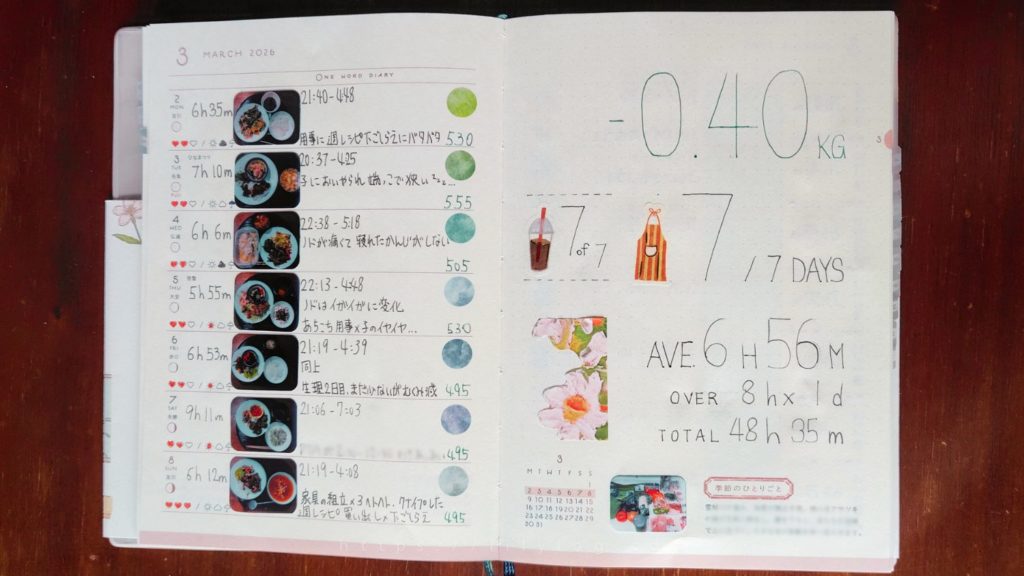 3 MARCH 2026
ONE WORD DIARY
2 MON 6h35m 21:40-4:48
用事に週レシピ下ごしらえにバタバタ 530
3 TUE 7h10m 20:37-4:25
子においやられ端っこで狭い
555
4 WED 6h6m 22:38-5:18
ノドが痛くて寝れたかんじがしない
505
5 THU 5h55m 22:13-4:48
ノドはイガイガに変化
あちこち用事×子のイヤイヤ… 530
6 FRI 6h53m 21:19-4:39
同上
生理2日目、まだ 495
7 SAT 9h11m 21:06-7:03
495
8 SUN 6h12m 21:19-4:08
家具の組立×3
週レシピ買い出し×下ごしらえ 495
-0.40 KG
7 of 7
7 / 7 DAYS
AVE. 6H 56M
OVER 8h × 1d
TOTAL 48h 35m
3
M T W T F S S
1
2 3 4 5 6 7 8
9 10 11 12 13 14 15
16 17 18 19 20 21 22
23 24 25 26 27 28 29
30 31
季節のひとりごと